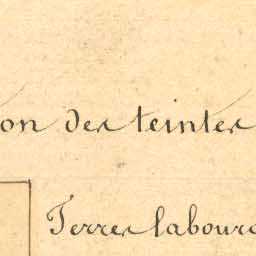 on des teintes
Terres labour